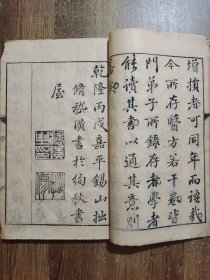 增損者可同年而語哉
今所存醫方若干數皆
門弟子所錄存者學者
能讀其書以通其意則
乾隆丙戌嘉平錫山拙
脩嵇璜書於絢秋書
屋